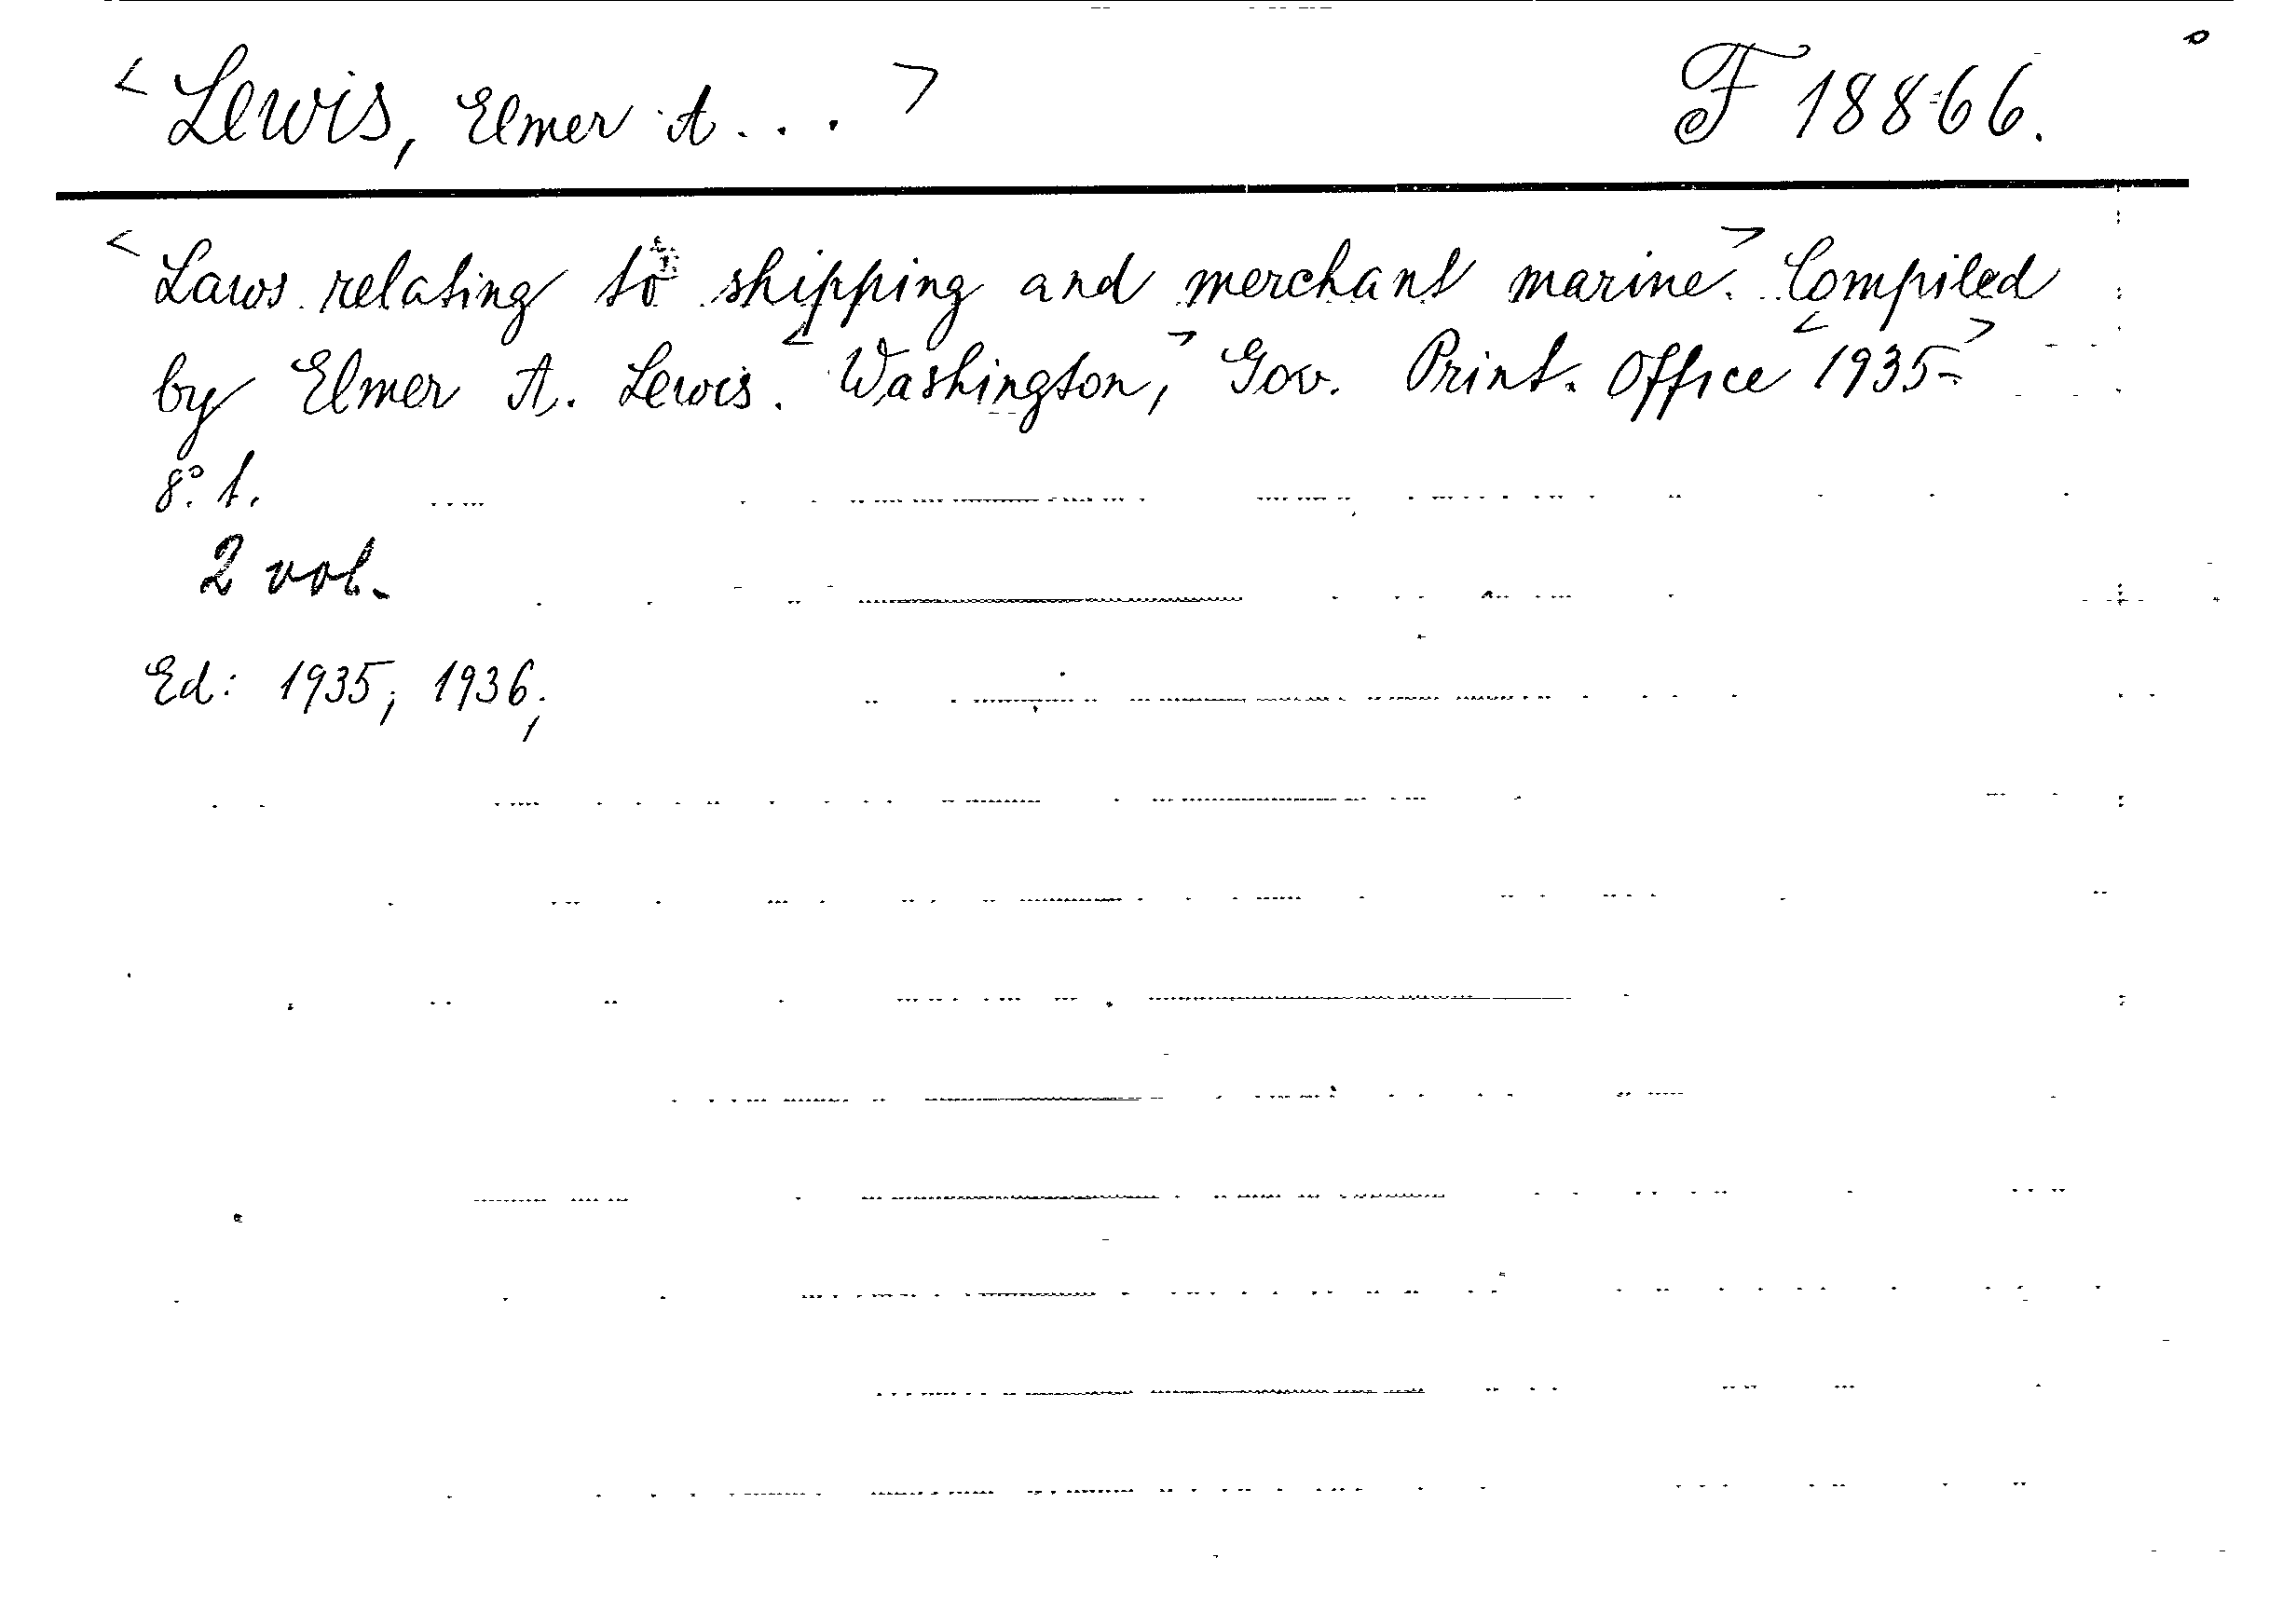 < Lewis, Elmer A... > F 18866.
< Laws relating to shipping and merchant marine. > Compiled
by Elmer A. Lewis. < Washington, > Gov. Print. Office < 1935- >
8°. t.
2 vol.
Ed: 1935; 1936;